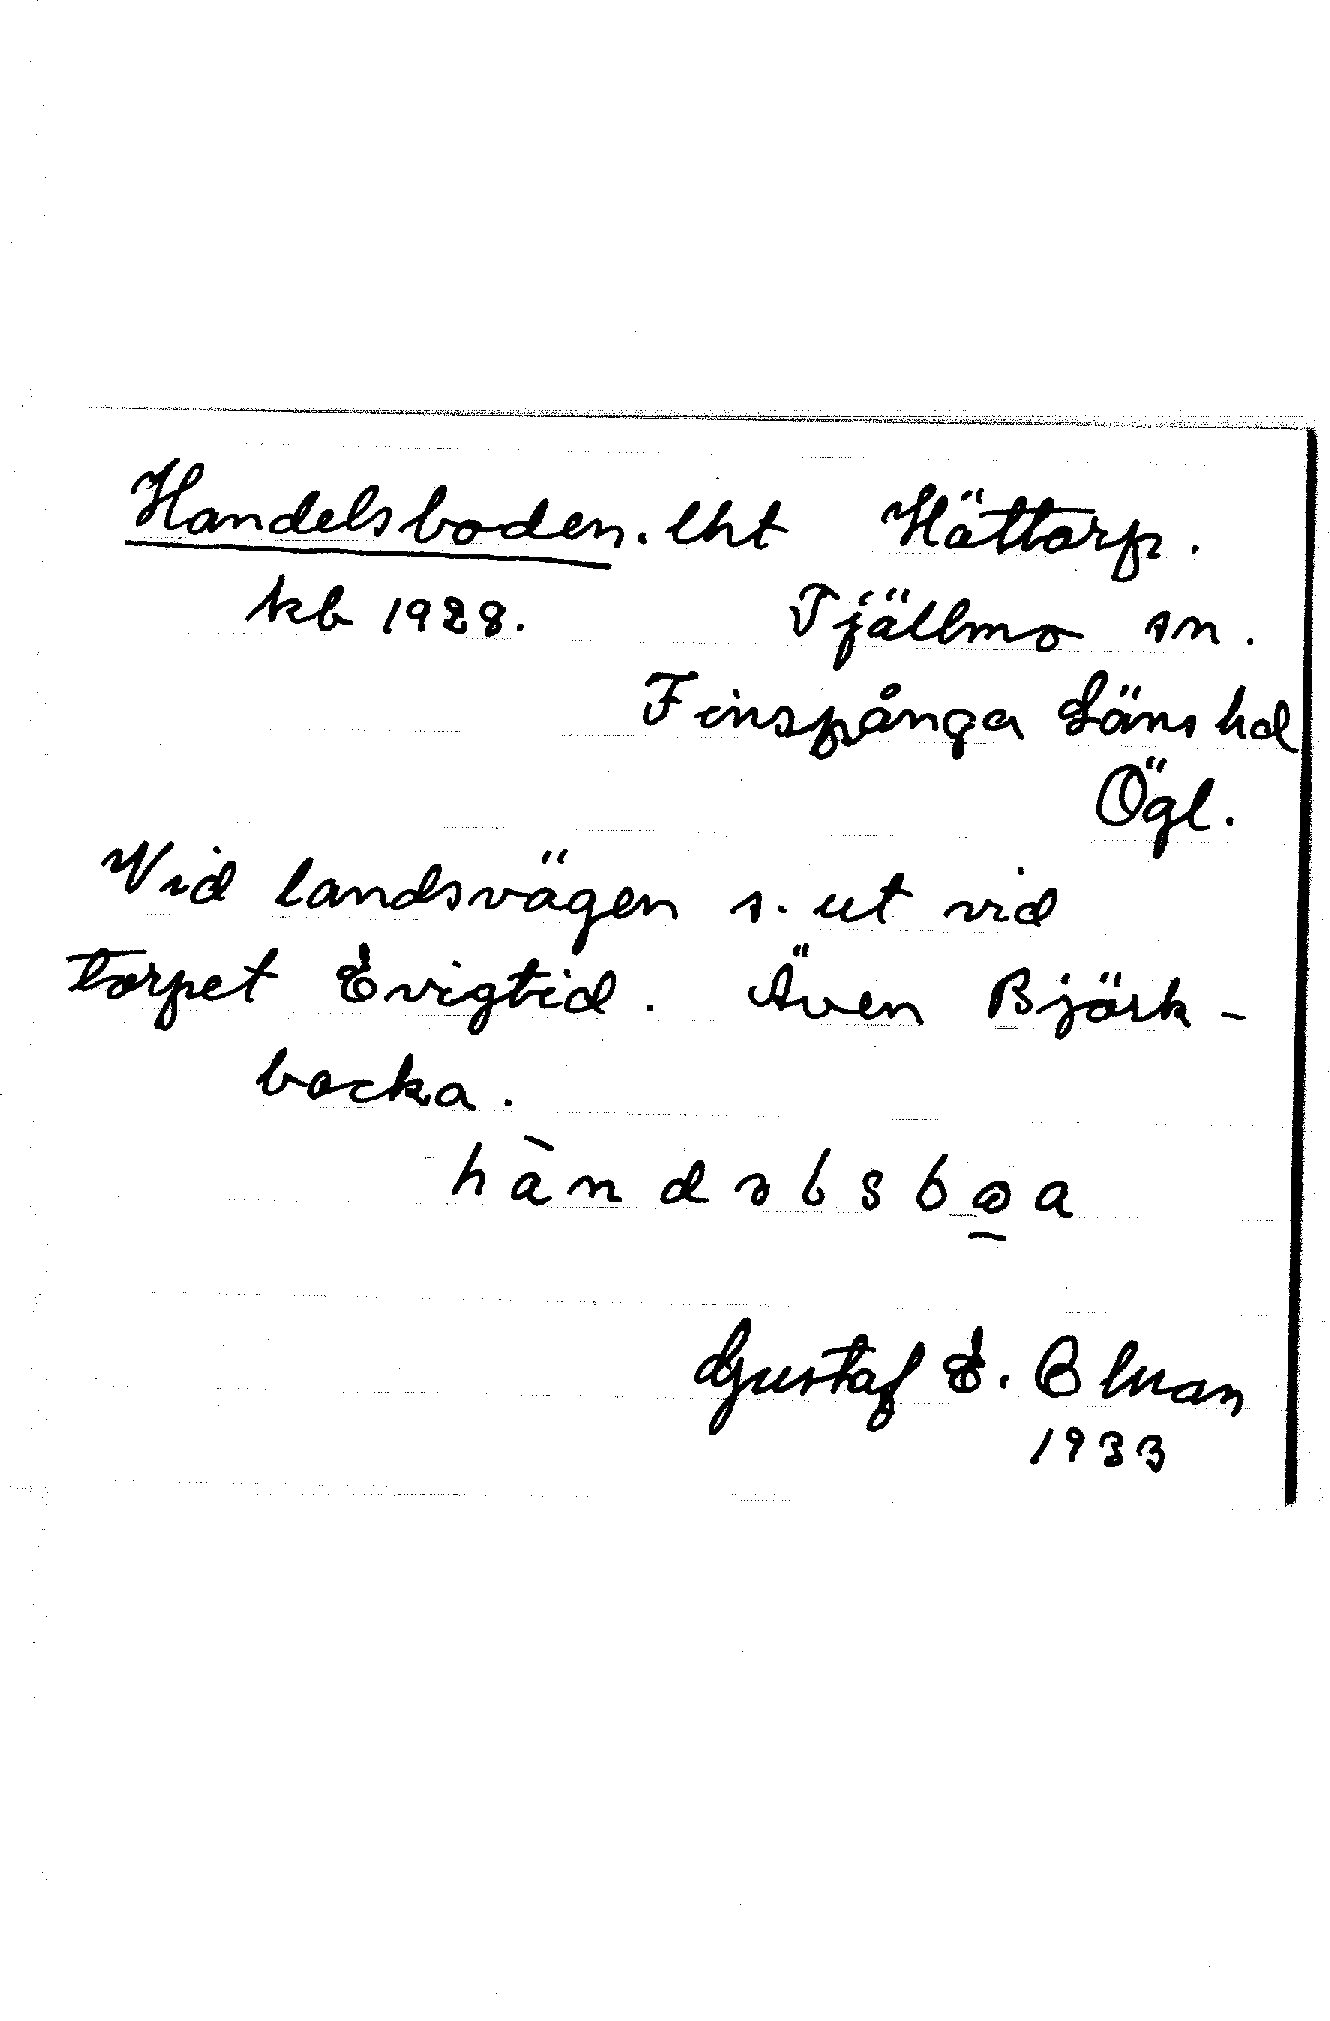 Handelsboden. lht Hättorp.
kb 1928. Tjällmo sn.
Finspånga Läns hd
Ögl.
Vid landsvägen s. ut vid
torpet Evigtid. Även Björk-
backa.
hàndəlsbo̱a
Gustaf E. Blman
1933